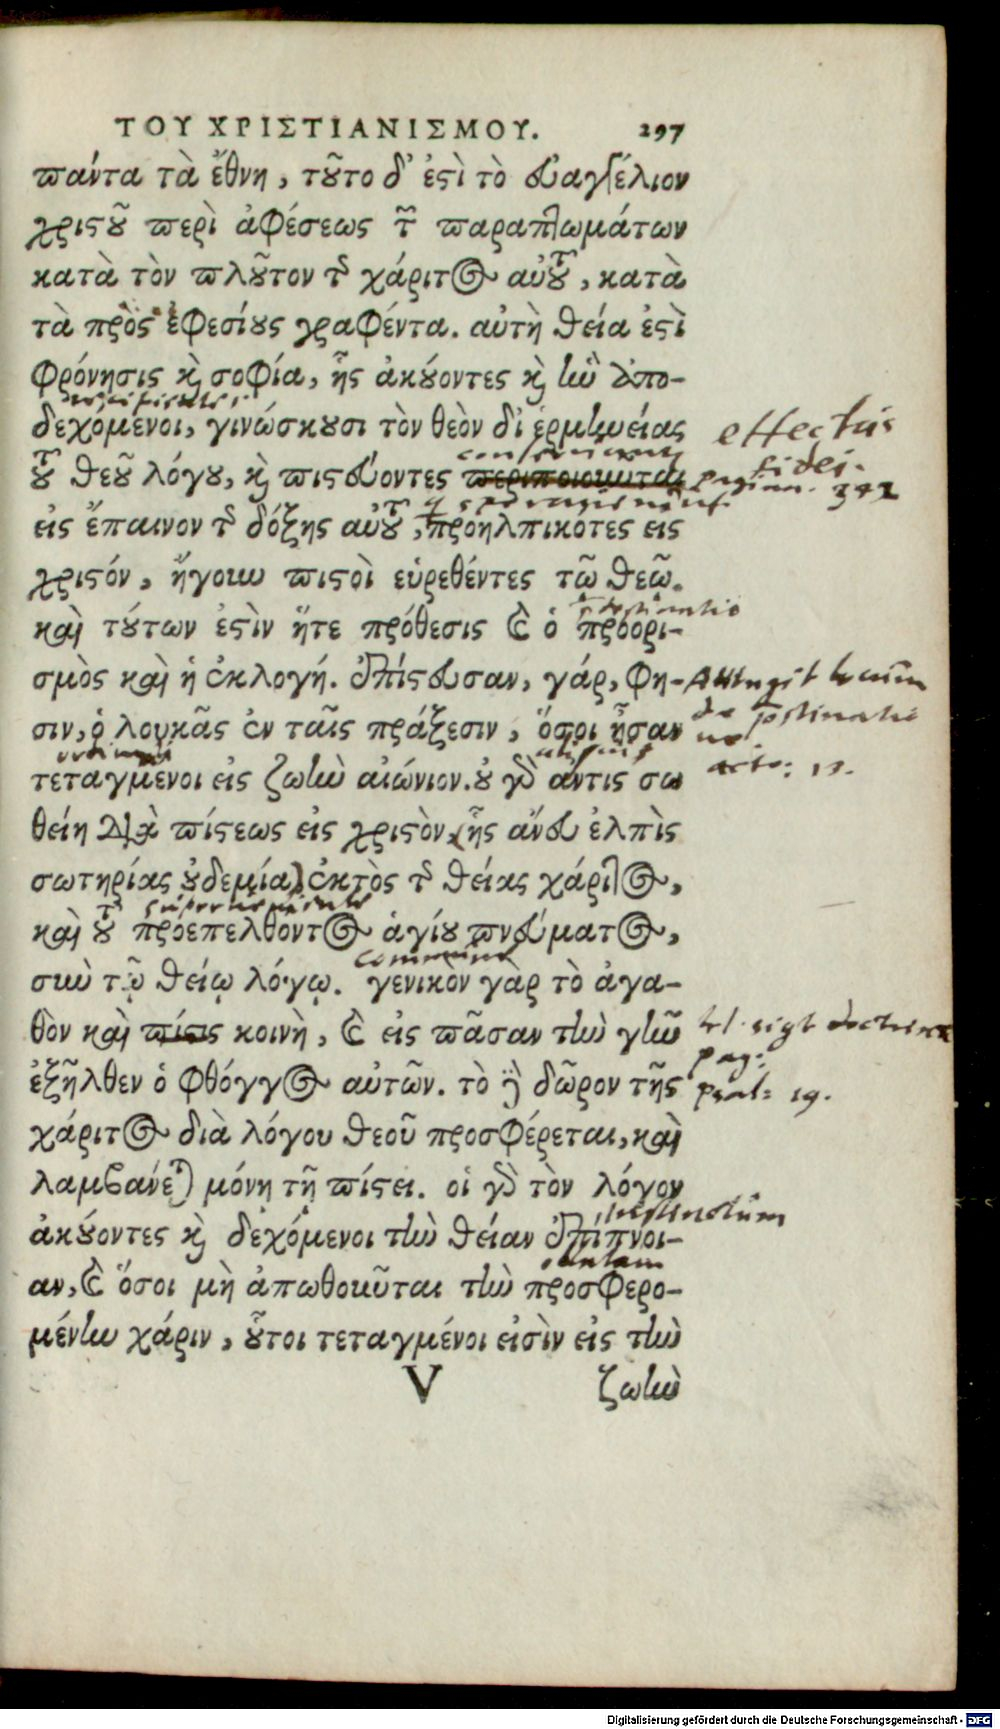 ΤΟΥ ΧΡΙΣΤΙΑΝΙΣΜΟΥ. 297
πάντα τὰ ἔθνη, τῦτο δ' ἐστὶ τὸ εὐαγγέλιον
χριστῦ περὶ ἀφέσεως τ̃ παραπτωμάτων
κατὰ τὸν πλῦτον τῆς χάριτος αὐτῦ, κατὰ
τὰ πρὸς ἐφεσίυς γραφέντα. αὐτὴ θεία ἐστὶ
φρόνησις καὶ σοφία, ἧς ἀκύοντες καὶ ἣν ἀπο-
δεχόμενοι, γινώσκυσι τὸν θεὸν δι ἑρμηνείας
τῦ θεῦ λόγυ, καὶ πιστεύοντες περιποιοῦνται
effectus
fidei.
pagina. 342
εἰς ἔπαινον τῆς δόξης αὐτῦ, προηλπικότες εἰς
χριστόν, ἤγουν πιστοὶ εὑρεθέντες τῶ θεῶ.
καὶ τύτων ἐστὶν ἥτε πρόθεσις καὶ ὁ προορι-
σμὸς καὶ ἡ ἐκλογή. ἐπίστευσαν, γάρ, φη-
Attingit locum
σιν, ὁ λουκᾶς ἐν ταῖς πράξεσιν, ὅσοι ἦσαν
τεταγμένοι εἰς ζωὴν αἰώνιον. ὐ γὰρ ἄντις σω
acto: 13.
θείη διὰ πίστεως εἰς χριστὸν, (ἧς ἄνευ ἐλπὶς
σωτηρίας ὐδεμία) ἐκτὸς τῆς θείας χάριτος,
καὶ τῦ προεπελθόντος ἁγίυ πνεύματος,
σὺν τῷ θείῳ λόγῳ. γενικὸν γὰρ τὸ ἀγα-
commune
θὸν καὶ πίστις κοινὴ, καὶ εἰς πᾶσαν τὴν γῆν
ἐξῆλθεν ὁ φθόγγος αὐτῶν. τὸ δὲ δῶρον τῆς
pag:
psal: 19.
χάριτος διὰ λόγου θεοῦ προσφέρεται, καὶ
λαμβάνεται μόνῃ τῇ πίστει. οἱ γὰρ τὸν λόγον
ἀκύοντες καὶ δεχόμενοι τὴν θείαν ἐπίπνοι-
αν, καὶ ὅσοι μὴ ἀπωθοῦνται τὴν προσφερο-
μένην χάριν, ὗτοι τεταγμένοι εἰσὶν εἰς τὴν
V ζωὴν
Digitalisierung gefördert durch die Deutsche Forschungsgemeinschaft - DFG